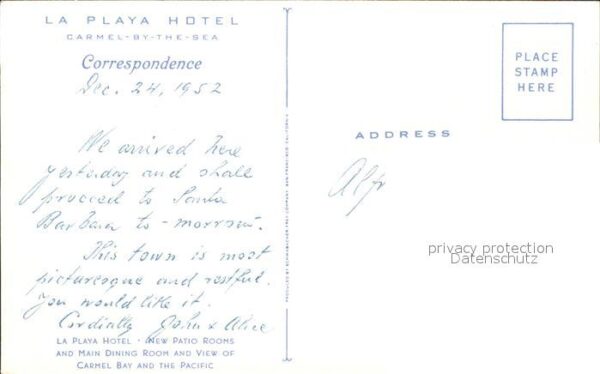 LA PLAYA HOTEL
CARMEL-BY-THE-SEA
Correspondence
Dec. 24, 1952
We arrived here
yesterday and shall
proceed to Santa
Barbara to-morrow.
This town is most
picturesque and restful.
You would like it.
Cordially John & Alice
LA PLAYA HOTEL · NEW PATIO ROOMS
AND MAIN DINING ROOM AND VIEW OF
CARMEL BAY AND THE PACIFIC
PRODUCED BY SCHWABACHER-FREY COMPANY, SAN FRANCISCO, CALIFORNIA
PLACE
STAMP
HERE
ADDRESS
Alfr
privacy protection
Datenschutz